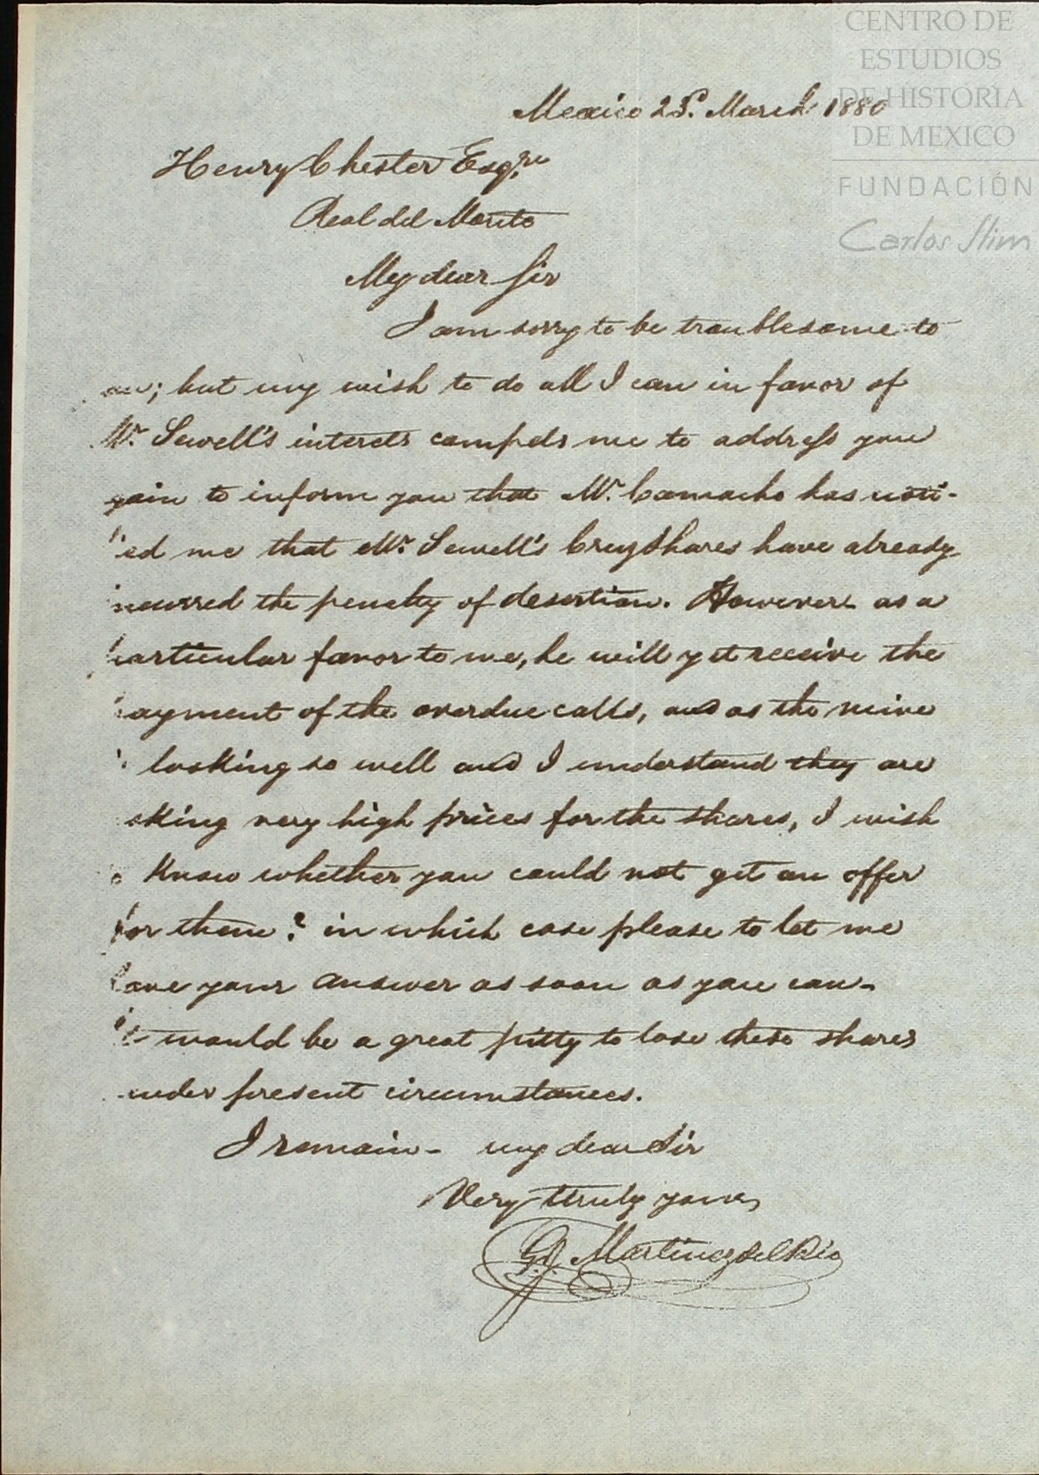 CENTRO DE
ESTUDIOS
DE HISTORIA
DE MEXICO
FUNDACIÓN
Carlos Slim
Mexico 25. March 1880
Henry Chester Esqre
Real del Monte
My dear Sir
I am sorry to be troublesome to
ou; but my wish to do all I can in favor of
Mr. Sewell's interets compels me to address you
gain to inform you that Mr. Camacho has noti-
ed me that Mr. Sewell's shares have already
incurred the penalty of desertion. However as a
particular favor to me, he will yet receive the
payment of the overdue calls, and as the mine
looking so well and I understand they are
sking very high prices for the shares, I wish
o know whether you could not get an offer
for them? in which case please to let me
have your answer as soon as you can.
it would be a great pitty to lose these shares
nder present circumstances.
I remain - my dear Sir
Very truly yours,
Martinez del Rio